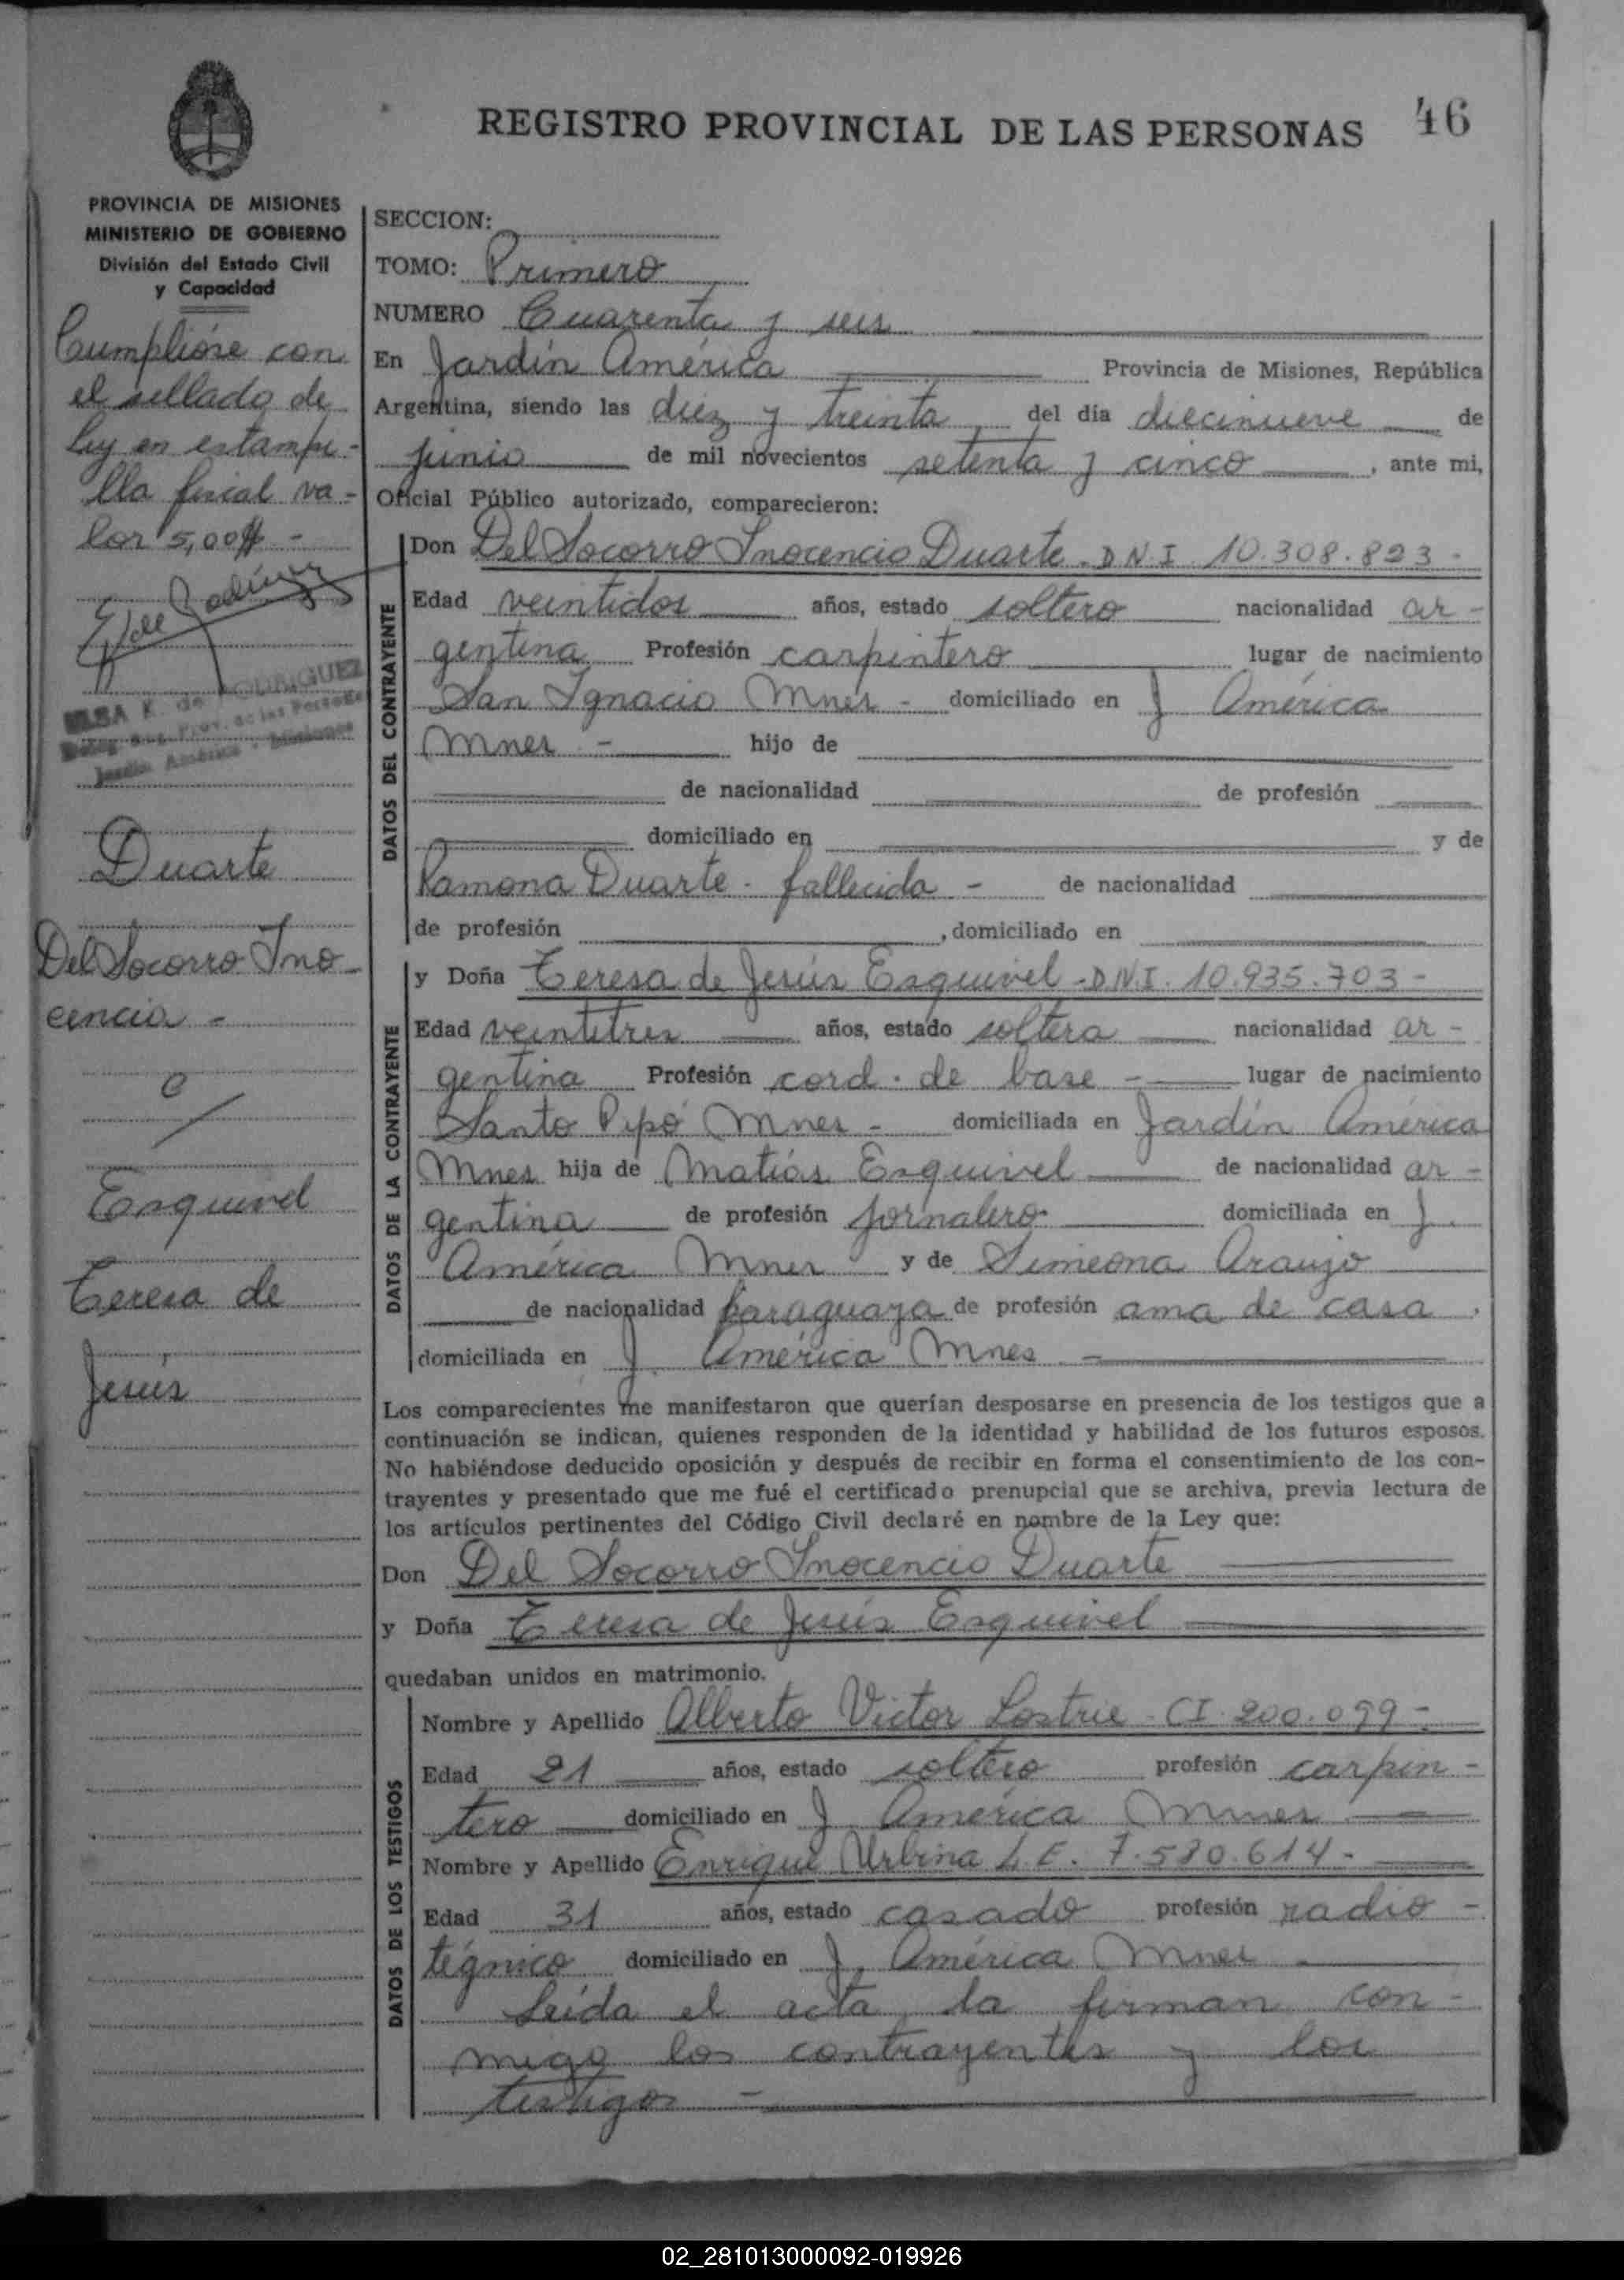 REGISTRO PROVINCIAL DE LAS PERSONAS 46
PROVINCIA DE MISIONES
MINISTERIO DE GOBIERNO
División del Estado Civil
y Capacidad
Cumplióse con
el sellado de
ley en estampi-
lla fiscal va-
lor 5,00$ -
ELSA E. de RODRIGUEZ
Jardín América - Misiones
Duarte
Del Socorro Ino-
cencio -
c/
Esquivel
Teresa de
Jesús
SECCION:
TOMO: Primero
NUMERO Cuarenta y seis
En Jardín América Provincia de Misiones, República
Argentina, siendo las diez y treinta del día diecinueve de
junio de mil novecientos setenta y cinco, ante mi,
Oficial Público autorizado, comparecieron:
DATOS DEL CONTRAYENTE
Don Del Socorro Inocencio Duarte - D.N.I. 10.308.823 -
Edad veintidos años, estado soltero nacionalidad ar-
gentina Profesión carpintero lugar de nacimiento
San Ignacio Mnes - domiciliado en J América
Mnes - hijo de
de nacionalidad de profesión
domiciliado en y de
Ramona Duarte - fallecida - de nacionalidad
de profesión , domiciliado en
DATOS DE LA CONTRAYENTE
y Doña Teresa de Jesús Esquivel - D.N.I. 10.935.703 -
Edad veintitres años, estado soltera nacionalidad ar-
gentina Profesión cord. de base - lugar de nacimiento
Santo Pipó Mnes - domiciliada en Jardín América
Mnes hija de Matías Esquivel de nacionalidad ar-
gentina de profesión jornalero domiciliada en J.
América Mnes y de Simeona Araujo
de nacionalidad paraguaya de profesión ama de casa.
domiciliada en J. América Mnes -
Los comparecientes me manifestaron que querían desposarse en presencia de los testigos que a
continuación se indican, quienes responden de la identidad y habilidad de los futuros esposos.
No habiéndose deducido oposición y después de recibir en forma el consentimiento de los con-
trayentes y presentado que me fué el certificado prenupcial que se archiva, previa lectura de
los artículos pertinentes del Código Civil declaré en nombre de la Ley que:
Don Del Socorro Inocencio Duarte
y Doña Teresa de Jesús Esquivel
quedaban unidos en matrimonio.
DATOS DE LOS TESTIGOS
Nombre y Apellido Alberto Victor Lostrie - CI. 200.099 -
Edad 21 años, estado soltero profesión carpin-
tero domiciliado en J América Mnes
Nombre y Apellido Enrique Urbina L.E. 7.580.614 -
Edad 31 años, estado casado profesión radio-
tégnico domiciliado en J. América Mnes
Leída el acta la firman con-
migo los contrayentes y los
testigos -
02_281013000092-019926